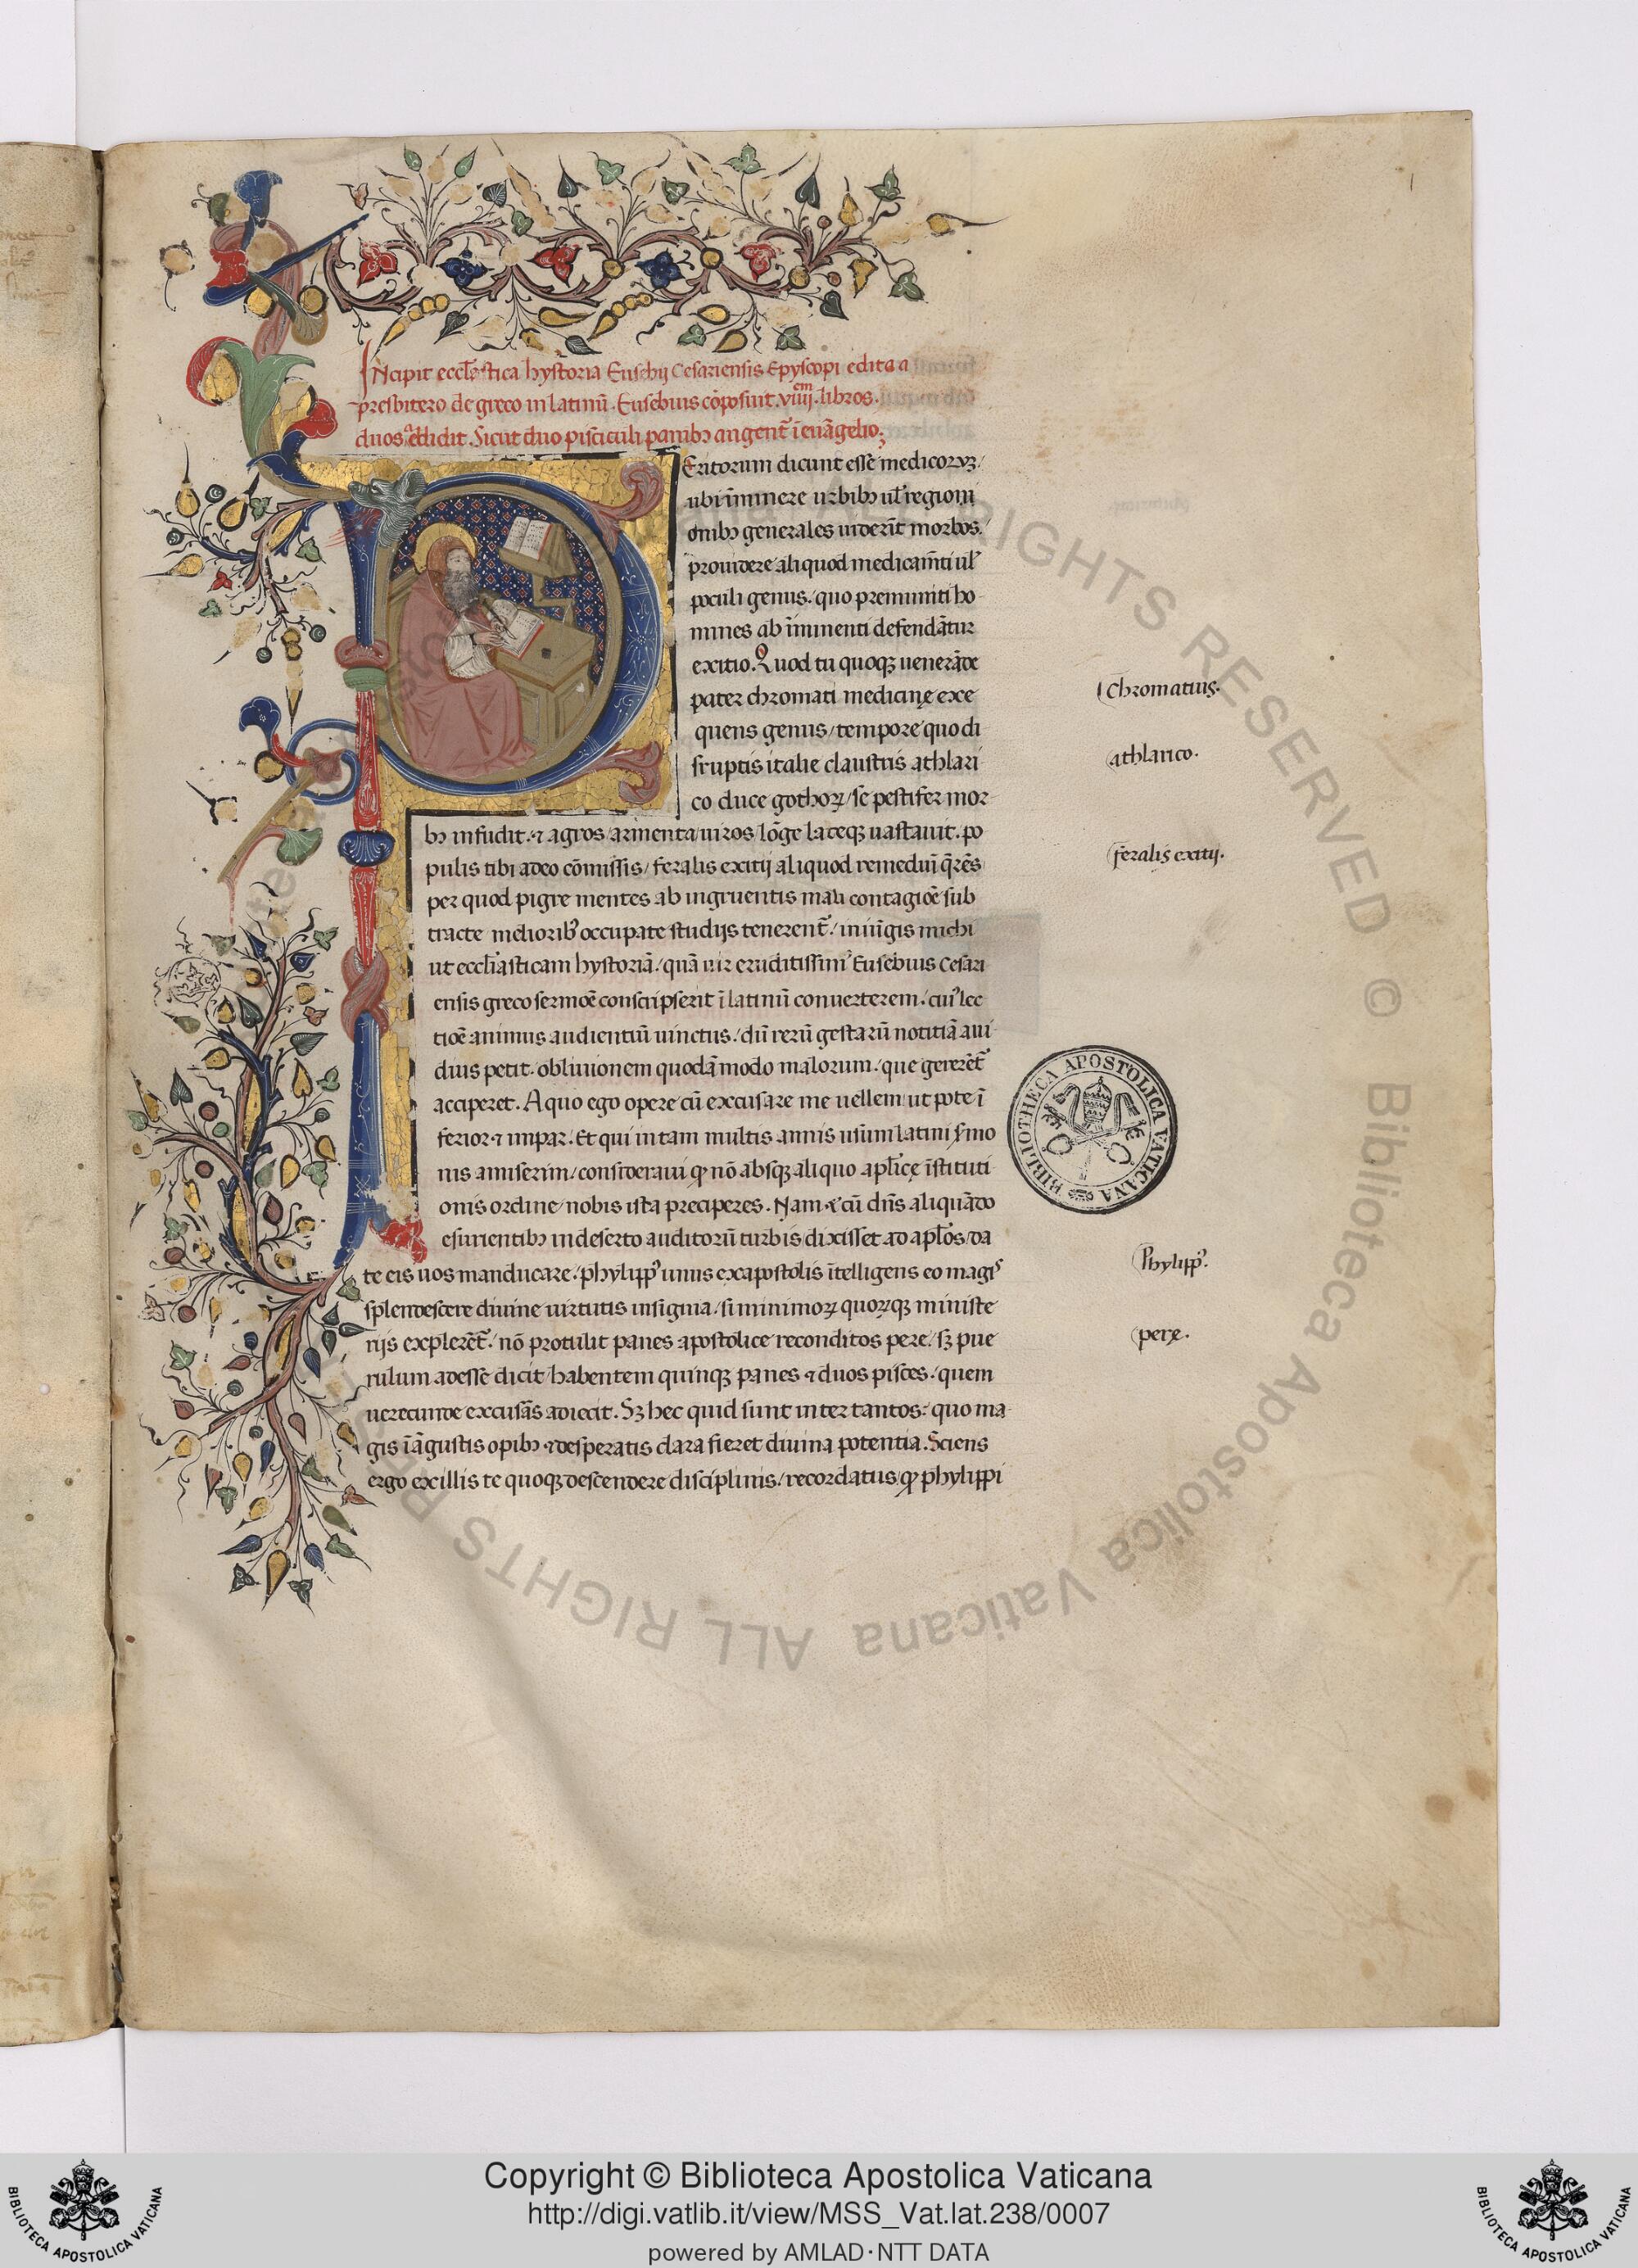 1
INcipit eccl̅estica hystoria Eusebij Cesariensis Epyscopi edita a
presbitero de greco in latinū. Eusebius cōposuit .viiij. em libros.
duos addidit. Sicut duo pisciculi panibꝫ augent᷑ ī euāgelio;
PEritorum dicunt esse medicorꝫ
ubi īminere urbibꝫ ul̕ regioni
onibꝫ generales uiderīt morbos.
prouidere aliquod medicam̄ti ul̕
poculi genus. quo premuniti ho-
mines ab īminenti defendātur
exitio. Quod tu quoqꝫ uenerāde
pater chromati medicinę exe
quens genus/ tempore quo di
sruptis italie claustris athlari
co duce gothoꝝ/ se pestifer mor-
bꝫ infudit. ⁊ agros/ armenta/ uiros/ lōge lateqꝫ uastauit. po
pulis tibi adeo cōmissis/ feralis exitij aliquod remediū q̄rēs
per quod pigre mentes ab ingruentis mali contagiōe sub
tracte melioribꝰ occupate studijs tenerent᷑/ iniūgis michi
ut eccl̅iasticam hystoriā/ quā uir eruditissimꝰ Eusebius Cesari
ensis greco sermōe conscripserit ī latinū conuerterem/ cuiꝰ lec
tiōe animus audientiū uinctus/ dū rerū gestarū notitiā aui-
dius petit. obliuionem quodā modo malorum/ que gererēt᷑
acciperet. A quo ego opere cū excusare me uellem ut pote ī
ferior ⁊ impar. Et qui in tam multis annis usum latini ẜmo
nis amiserim/ consideraui ꝙ nō absqꝫ aliquo apl̅icę īstituti
onis ordine/ nobis ista preciperes. Nam ⁊ cū dn̄s aliquādo
esurientibꝫ in deserto auditorū turbis dixisset ad apl̅os/ da
te eis uos manducare/ phylippꝰ unus ex apostolis ītelligens eo magis
splendescere diuine uirtutis insignia/ si minimoꝝ quoꝝqꝫ ministe
rijs explerēt᷑/ nō protulit panes apostolice reconditos pere/ sꝫ pue
rulum adesse dicit/ habentem quinqꝫ panes ⁊ duos pisces/ quem
uerecunde excusās adiecit. Sꝫ hec quid sunt inter tantos: quo ma-
gis ī āgustis opibꝫ ⁊ desperatis clara fieret diuina potentia. Sciens
ergo ex illis te quoqꝫ descendere disciplinis/ recordatus ꝙ phylippi
Chromatius.
athlarico.
feralis exitij.
Phylippꝰ.
perę.
BIBLIOTHECA APOSTOLICA VATICANA
ALL RIGHTS RESERVED © Biblioteca Apostolica Vaticana
Copyright © Biblioteca Apostolica Vaticana
http://digi.vatlib.it/view/MSS_Vat.lat.238/0007
powered by AMLAD·NTT DATA
BIBLIOTECA APOSTOLICA VATICANA
BIBLIOTECA APOSTOLICA VATICANA